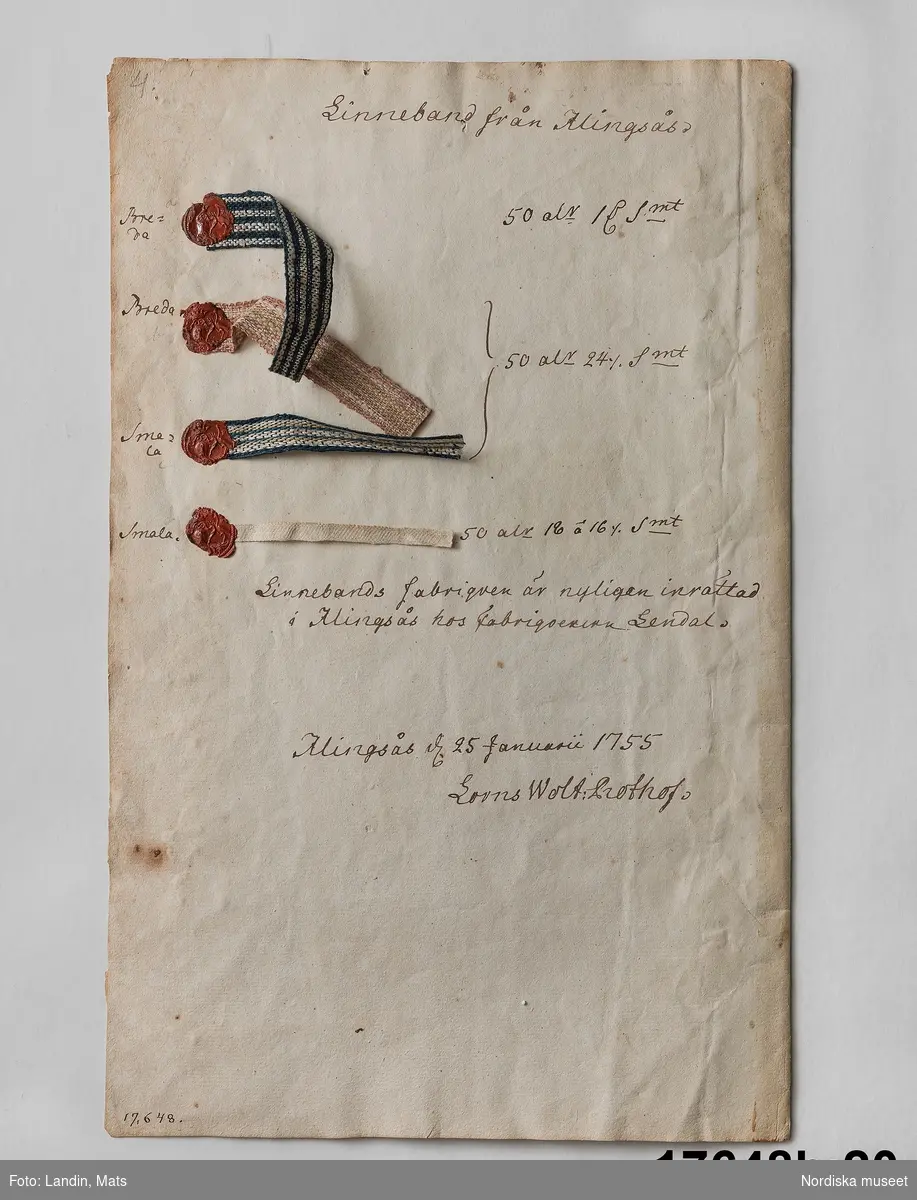 4.
Linneband från Alingsås.
Bre=
da
50 alr 1 Smt
Breda
50 alr 24/. Smt
Sma=
la
Smala.
50 alr 18 à 16/. Smt
Linnebands fabriqven är nyligen inrättad
i Alingsås hos fabriqveuren Lendal.
Alingsås d. 25 Januarii 1755
Lorns Wolt: Rothof.
17,648.
Foto: Landin, Mats
Nordiska museet